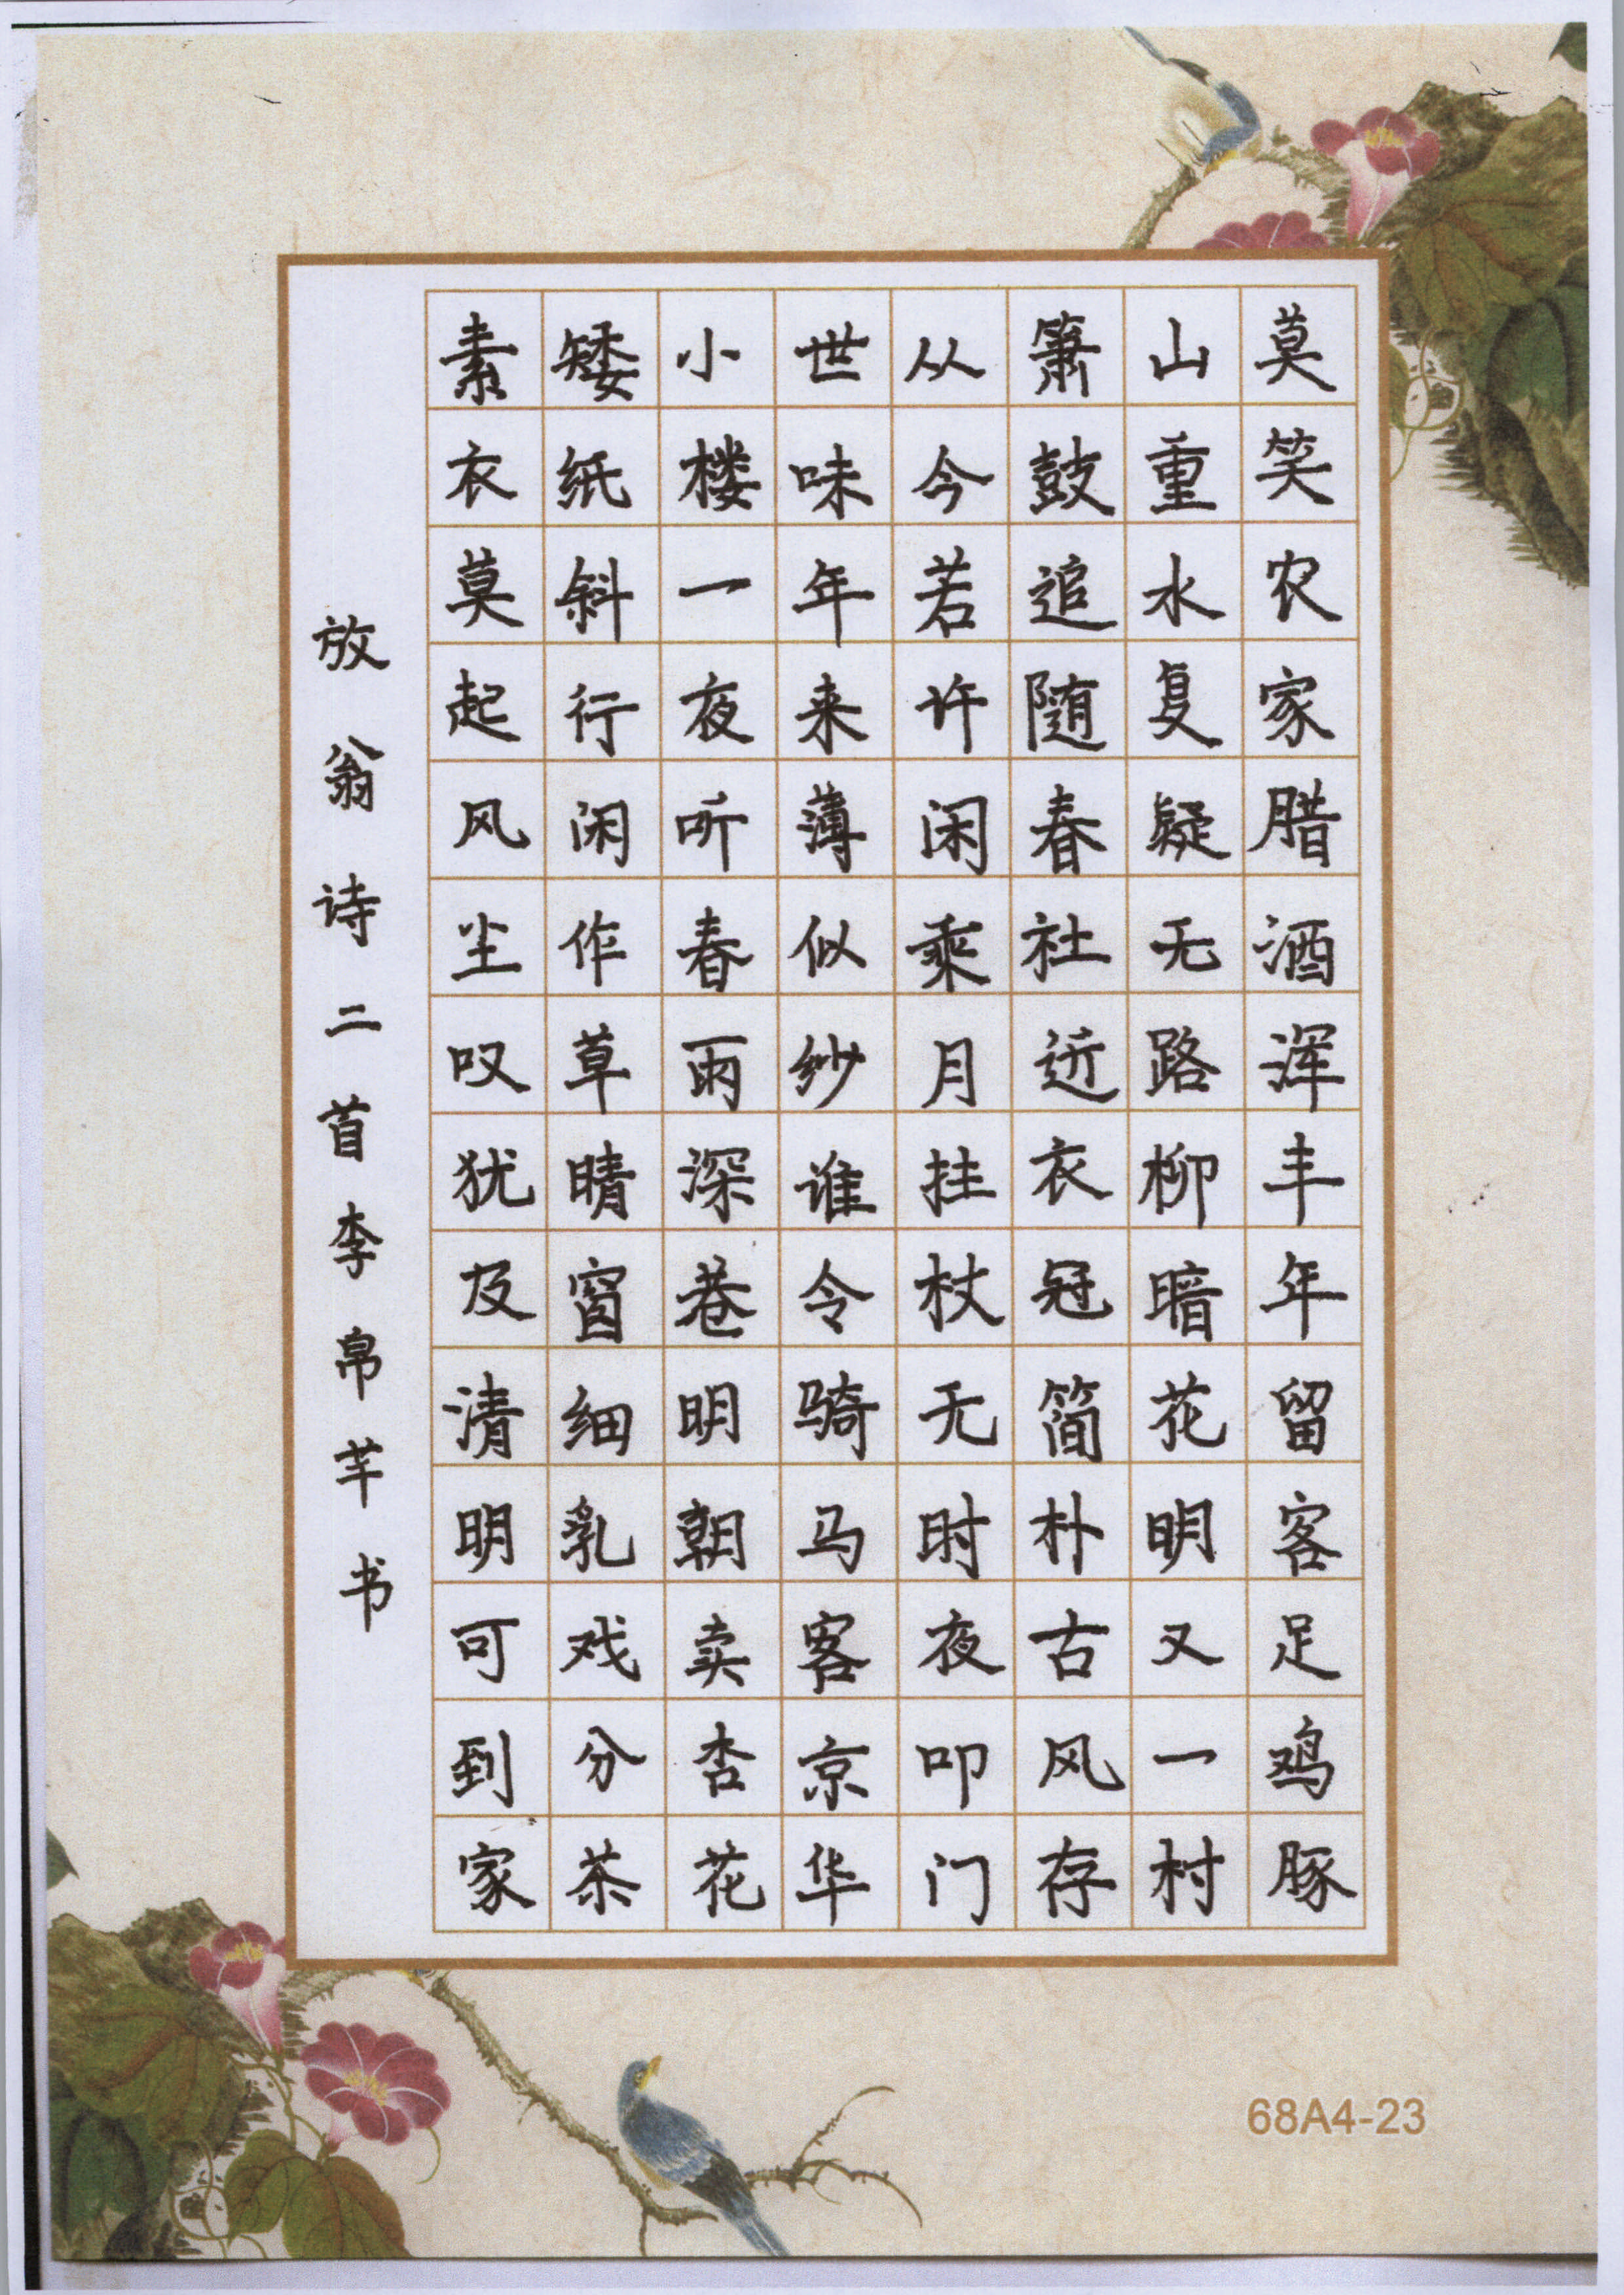 莫笑农家腊酒浑丰年留客足鸡豚
山重水复疑无路柳暗花明又一村
箫鼓追随春社近衣冠简朴古风存
从今若许闲乘月挂杖无时夜叩门
世味年来薄似纱谁令骑马客京华
小楼一夜听春雨深巷明朝卖杏花
矮纸斜行闲作草晴窗细乳戏分茶
素衣莫起风尘叹犹及清明可到家
放翁诗二首李帛芊书
68A4-23